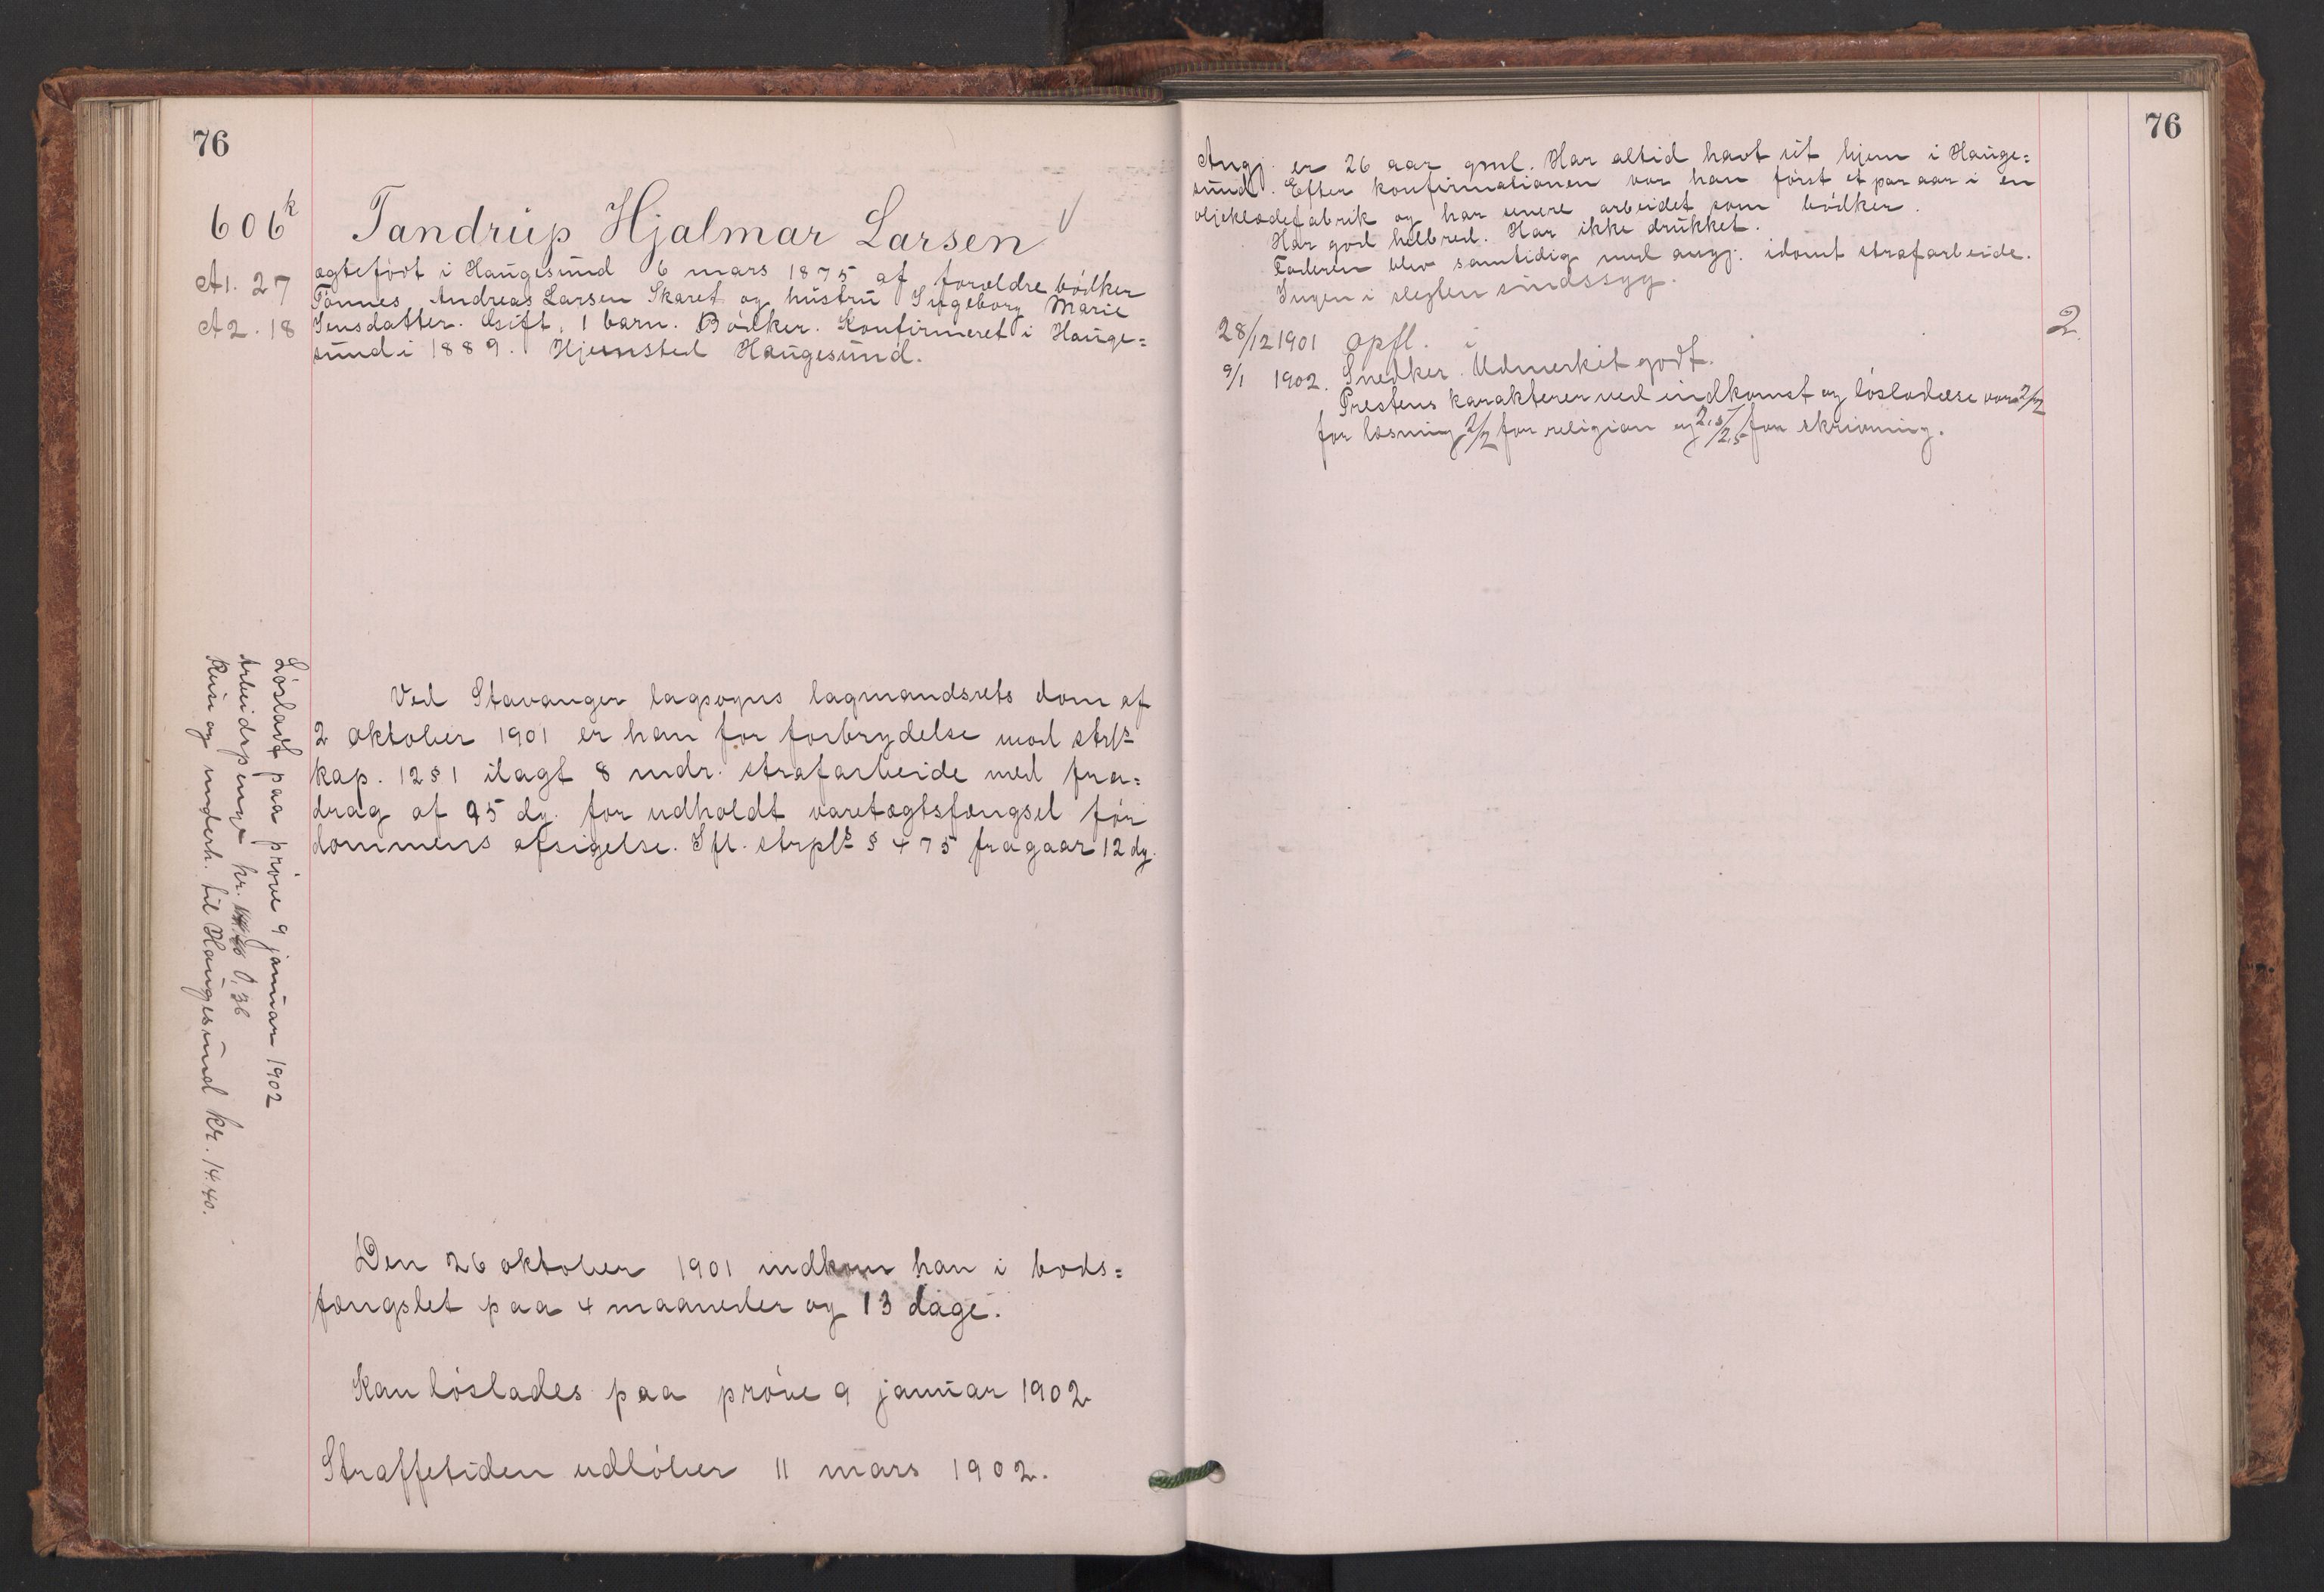 76
606k
Tandrup Hjalmar Larsen √
A1. 27
A2. 18
ægtefødt i Haugesund 6 mars 1875 af forældre bødker
Tønnes Andreas Larsen Skaret og hustru Ingeborg Marie
Jensdatter. Gift, 1 barn. Bødker. Konfirmeret i Hauge=
sund i 1889. Hjemsted Haugesund.
Ved Stavanger lagsogns lagmandsrets dom af
2 oktober 1901 er han for forbrydelse mod strls
kap. 12 § 1 ilagt 8 mdr. strafarbeide med fra=
drag af 95 dg. for udholdt varetægtsfængsel før
dommens afsigelse. Ifl. strpls § 475 fragaar 12 dg.
Løsladt paa prøve 9 januar 1902
Arbeidspenge kr. 0,36
Reise og underh. til Haugesund kr. 14.40.
Den 26 oktober 1901 indkom han i bods=
fængslet paa 4 maaneder og 13 dage.
Kan løslades paa prøve 9 januar 1902
Straffetiden udløber 11 mars 1902.
76
Angj. er 26 aar gml. Har altid havt sit hjem i Hauge=
sund. Efter konfirmationen var han først et par aar i en
oljeklædefabrik og har senere arbeidet som bødker.
Har god helbred. Har ikke drukket.
Faderen blev samtidig med angj. idømt strafarbeide.
Ingen i slegten sindssyg.
28/12 1901 opfl.
2.
9/1 1902. Snedker. Udmerket godt.
Prestens karakterer ved indkomst og løsladelse var 2/2
for læsning, 2/2 for religion og 2,5/2,5 for skrivning.